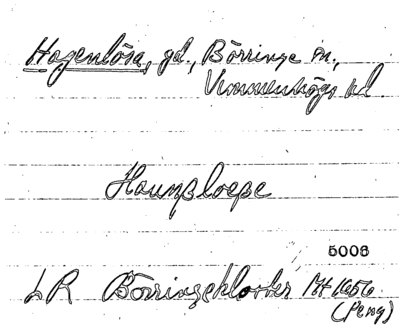 Hagenlösa, gd., Börringe sn.,
Vemmenhögs hd.
Haunβloeβe
5006
LR Börringekloster Mt 1656
(Peng)